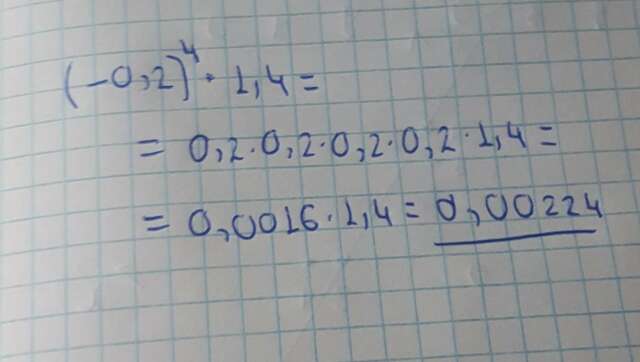 (-0,2)⁴·1,4=
=0,2·0,2·0,2·0,2·1,4=
=0,0016·1,4=0,00224